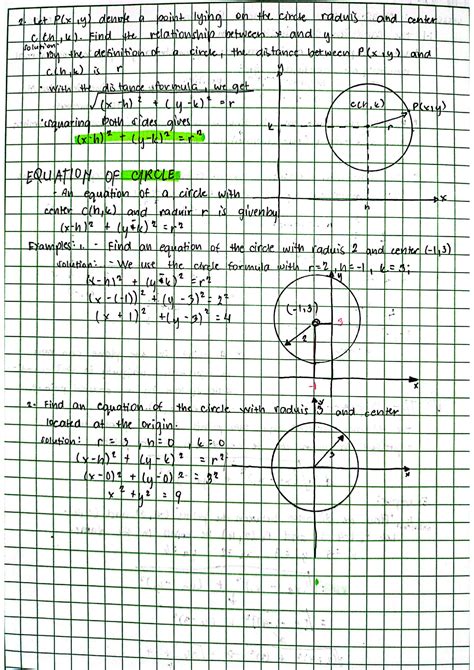 2. Let P(x,y) denote a point lying on the circle raduis and center
c(h,k). Find the relationship between x and y.
solution:
· By the definition of a circle, the distance between P(x,y) and
c(h,k) is r
· With the distance formula, we get
√(x-h)² + (y-k)² = r
· squaring both sides gives
(x-h)² - (y-k)² = r²
y
c(h,k)
P(x,y)
r
k
h
x
EQUATION OF CIRCLE
- An equation of a circle with
center c(h,k) and raduir r is givenby
(x-h)² + (y-k)² = r²
Examples: 1. - Find an equation of the circle with raduis 2 and center (-1,3)
solution: - We use the circle formula with r=2, h=-1, k=3;
(x-h)² + (y-k)² = r²
(x-(-1))² + (y-3)² = 2²
(x+1)² + (y-3)² = 4
y
(-1,3)
3
2
-1
x
2. Find an equation of the circle with raduis 3 and center
located at the origin.
solution: r=3, h=0, k=0
(x-h)² + (y-k)² = r²
(x-0)² + (y-0)² = 3²
x² + y² = 9
y
3
x